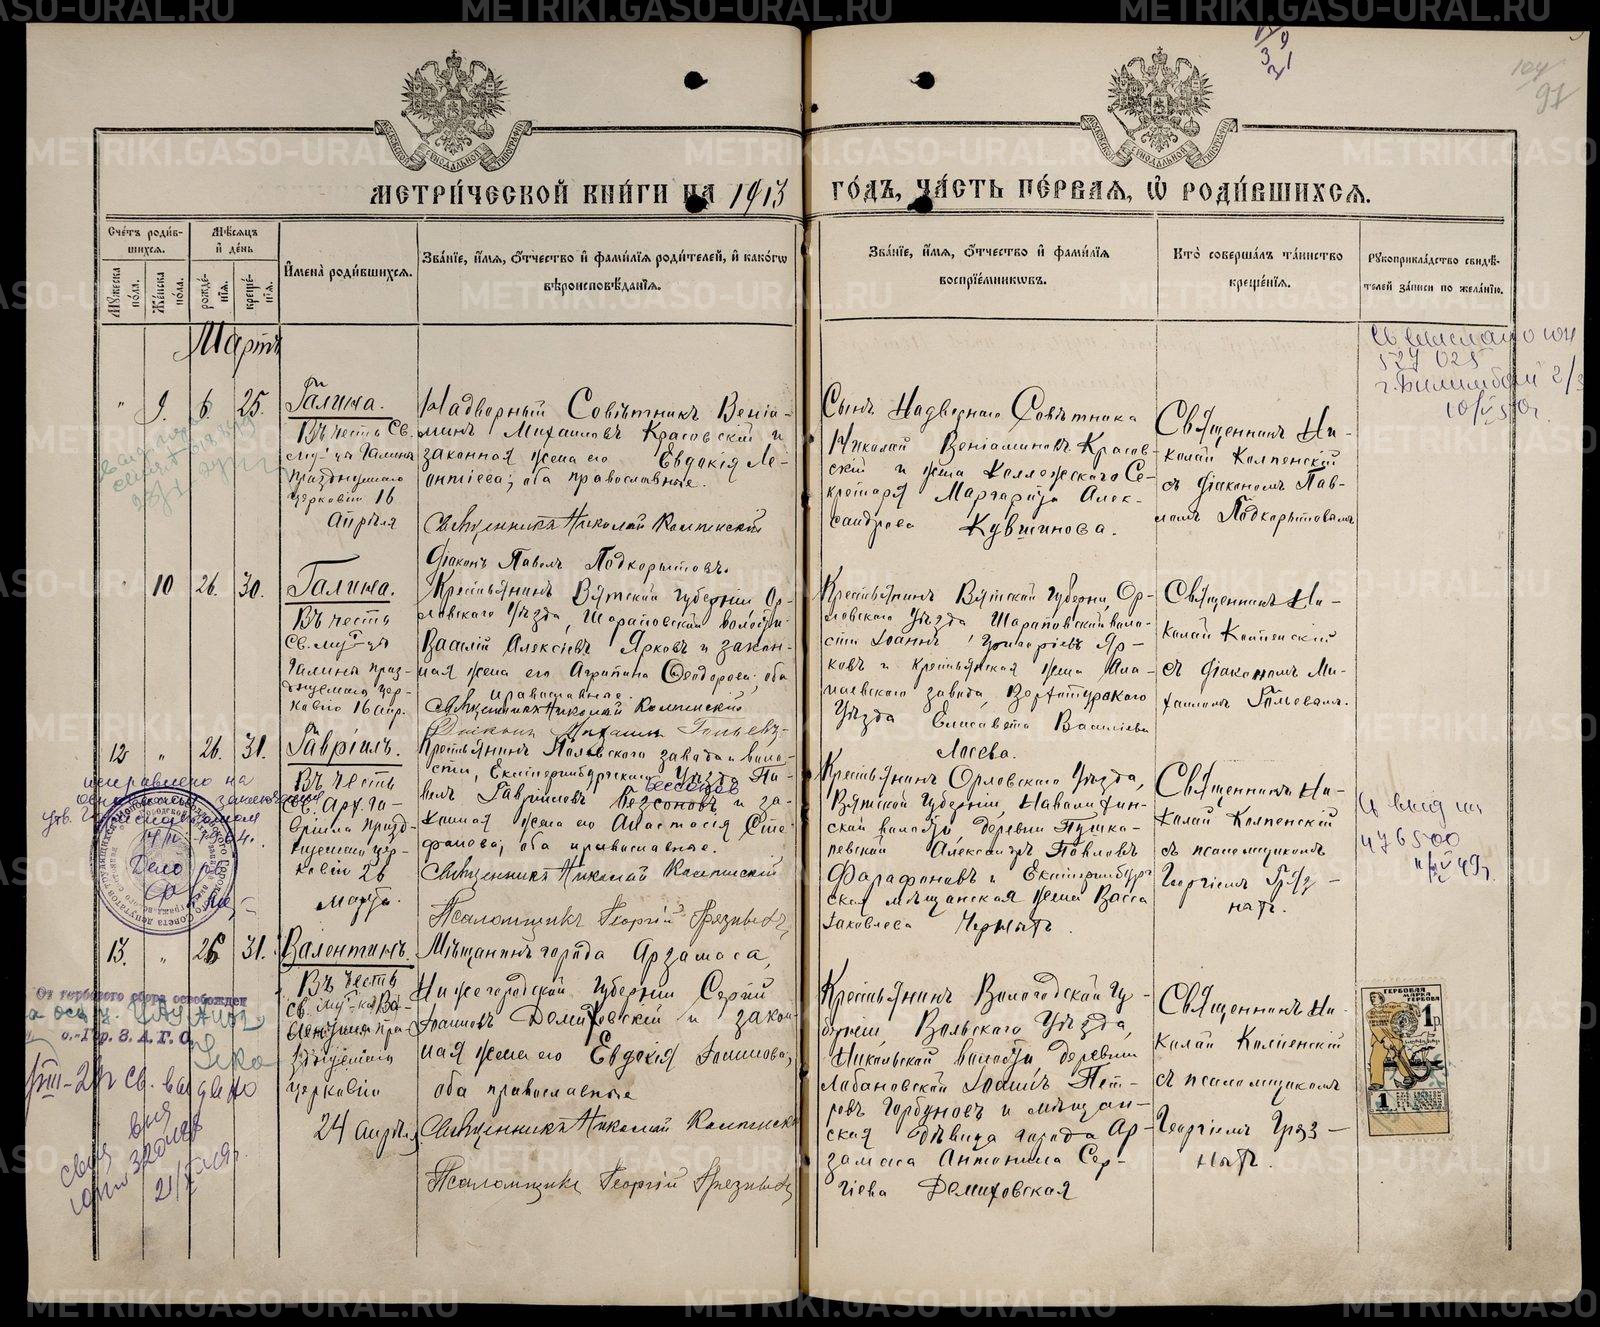 МЕТРИ́ЧЕСКОЙ КНИ́ГИ НА 1913 ГО́ДЪ, ЧА́СТЬ ПЕ́РВАѦ, Ѽ РОДИ́ВШИХСѦ.
Сче́тъ роди́вшихся.
Мѣ́сяцъ и де́нь
Мꙋжеска по́ла.
Же́нска по́ла.
рожде́нїѧ.
креще́нїѧ.
И҆мена̀ роди́вшихсѧ.
Зва́нїе, и҆́мѧ, ѻ҆́тчество и҆ фами́лїѧ роди́телей, и҆ како́гѡ
вѣроисповѣ́данїѧ.
Зва́нїе, и҆́мѧ, ѻ҆́тчество и҆ фами́лїѧ
воспрїе́мникѡвъ.
Кто̀ соверша́лъ та́инство
креще́нїѧ.
Рꙋкоприкла́дство свидѣ́телей за́писи по жела́нїю.
Мартъ
" 9. 6 25. Галина.
Въ честь Св.
муч-цы Галины
празднуемой
церковію 16
Апрѣля
Надворный Совѣтникъ Веніа-
минъ Михаиловъ Красовскій и
законная жена его Евдокія Ле-
онтіева; оба православные.
Священникъ Николай Колпенскій
Діаконъ Павелъ Подкорытовъ.
Сынъ Надворнаго Совѣтника
Николай Веніаминовъ Красов-
скій и жена Коллежскаго Се-
кретаря Маргарита Алек-
сандрова Кувшинова.
Священникъ Ни-
колай Колпенскій
съ діакономъ Пав-
ломъ Подкорытовымъ
10 26. 30. Галина.
Въ честь
Св. муч-цы
Галины праз-
днуемой цер-
ковію 16 апр.
Крестьянинъ Вятской губерніи Ор-
ловскаго уѣзда, Шараповской волости
Василій Алексѣевъ Ярковъ и закон-
ная жена его Агрипина Ѳеодорова; оба
православные.
Священникъ Николай Колпенскій
Крестьянинъ Вятской губерніи, Ор-
ловскаго уѣзда Шараповской воло-
сти Іоаннъ Григорьевъ Яр-
ковъ и крестьянская жена Ала-
паевскаго завода, Верхотурскаго
уѣзда Елисавета Василіева
Лосева.
Священникъ Ни-
колай Колпенскій
съ діакономъ Ми-
хаиломъ
12 " 26. 31. Гавріилъ.
Въ честь
Св. Арх. Га-
вріила празд-
нуемаго цер-
ковію 26
марта.
Крестьянинъ завода и воло-
сти, Екатеринбургскаго уѣзда Па-
велъ Гавріиловъ Безсоновъ и за-
конная жена его Анастасія Сте-
фанова; оба православные.
Бессонов
Священникъ Николай Колпенскій
Псаломщикъ Георгій Грязныхъ
Крестьянинъ Орловскаго уѣзда,
Вятской губерніи,
ской волости, деревни Пушка-
ревской Александръ Павловъ
Фарафоновъ и Екатеринбург-
ская мѣщанская жена Васса
Іаковлева Черныхъ.
Священникъ Ни-
колай Колпенскій
съ псаломщикомъ
Георгіемъ Гряз-
ныхъ.
13. " 26 31. Валентинъ.
Въ честь
св. муч-ка Ва-
лентина пра-
зднуемаго
церковію
24 апрѣля
Мѣщанинъ города Арзамаса,
Нижегородской губерніи Сергій
Іоанновъ Демиховскій и закон-
ная жена его Евдокія Іоаннова;
оба православные
Священникъ Николай Колпенскій
Псаломщикъ Георгій Грязныхъ
Крестьянинъ Вологодской гу-
берніи, Вольскаго уѣзда,
Никольской волости деревни
Лобановской Іоаннъ Пет-
ровъ Горбуновъ и мѣщан-
ская дѣвица города Ар-
замаса Антонина Сер-
гіева Демиховская
Священникъ Ни-
колай Колпенскій
съ псаломщикомъ
Георгіемъ Гряз-
ныхъ.
исправлено на
От гербового сбора освобожден
ГЕРБОВАЯ МАРКА
1р
1
METRIKI.GASO-URAL.RU